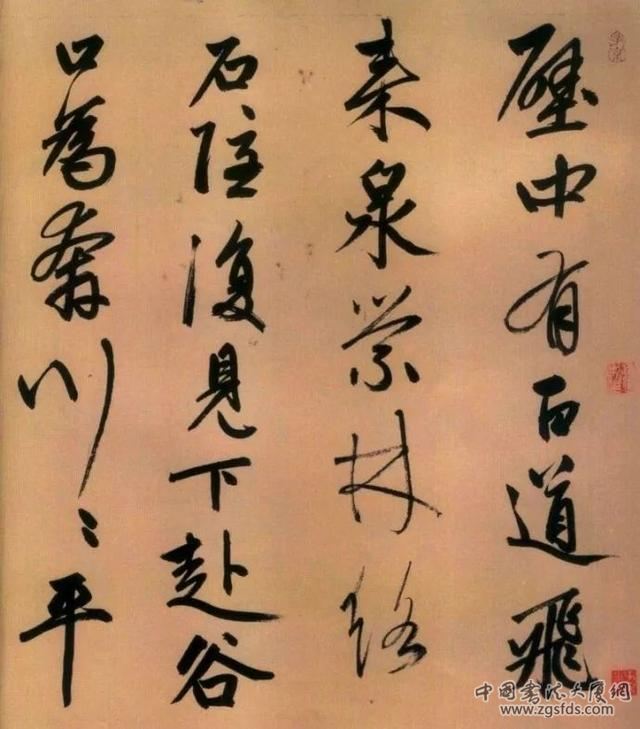 壁中有百道飛
來泉縈林絡
石隱復見下赴谷
口為奔川〻平
中國書法大廈網
www.zgsfds.com